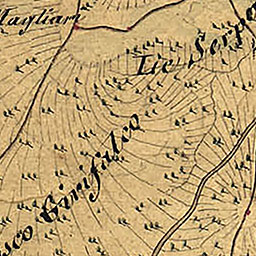 Magliari
Lie Serpo
sco Cirifalco